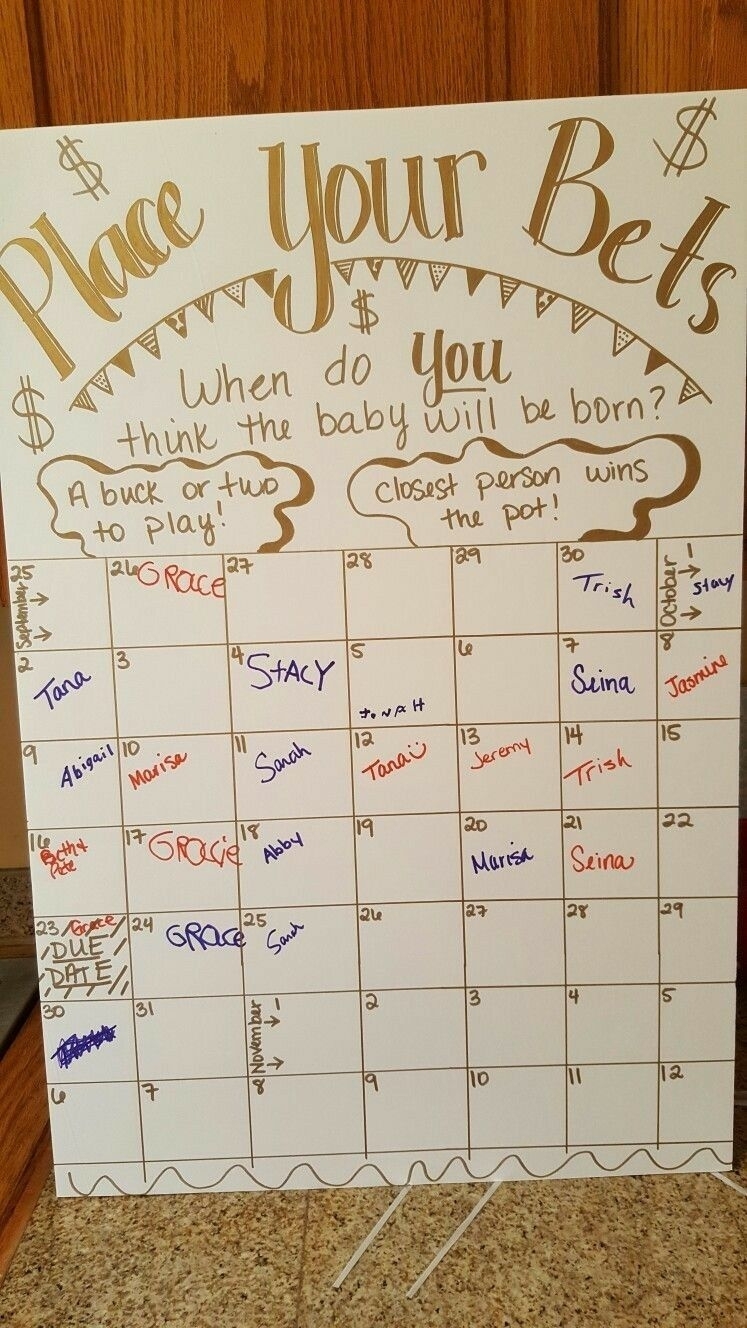 $ $
Place Your Bets
$
$
When do you
think the baby will be born?
A buck or two
to play!
closest person wins
the pot!
25 September
26 GRACE
27
28
29
30 Trish
October 1 Stacy
2 Tana
3
4 STACY
5
6
7 Seina
8 Jasmine
9 Abigail
10 Marisa
11 Sarah
12 Tana
13 Jeremy
14 Trish
15
16 Beth &
Pete
17 GRACIE
18 Abby
19
20 Marisa
21 Seina
22
23 Grace
DUE
DATE
24 GRACE
25 Sarah
26
27
28
29
30
31
November 1
2
3
4
5
6
7
8
9
10
11
12